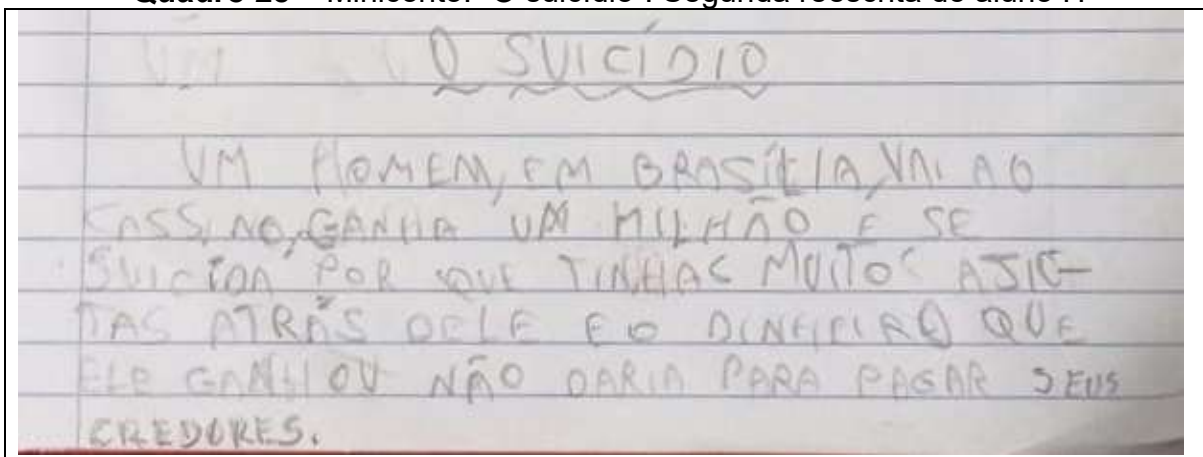 O SUICÍDIO
UM HOMEM, EM BRASÍLIA, VAI AO
CASSINO, GANHA UM MILHÃO E SE
SUICIDA POR QUE TINHAS MUITOS AJIO-
TAS ATRÁS DELE E O DINHEIRO QUE
ELE GANHOU NÃO DARIA PARA PAGAR SEUS
CREDORES.